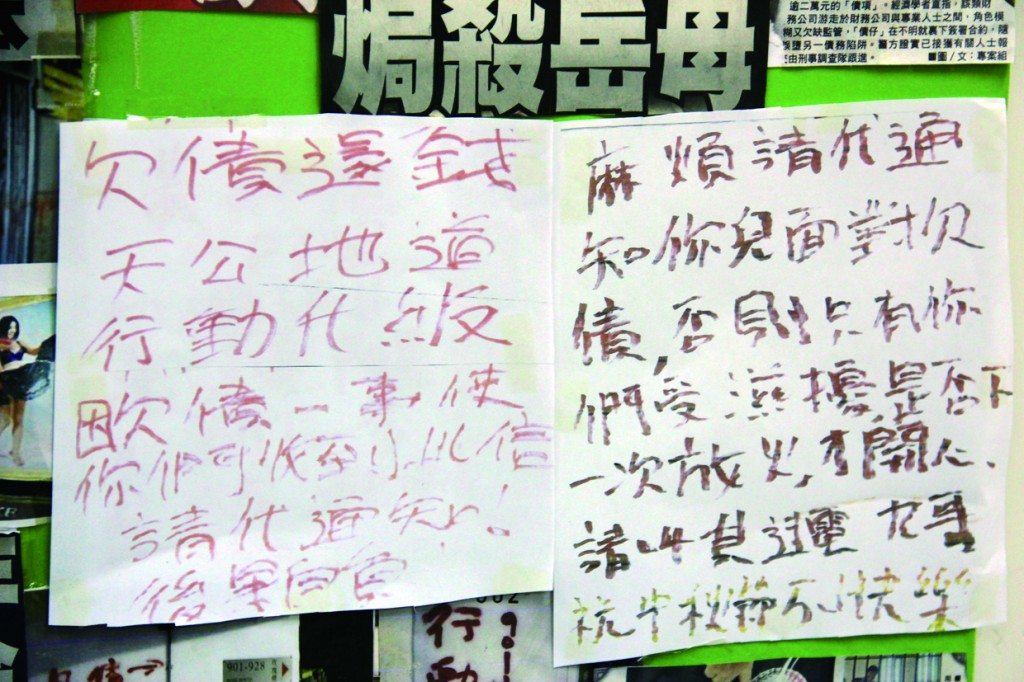 焗殺岳母
逾二萬元的「債項」。經濟學者直指,該類財
務公司游走於財務公司與專業人士之間,角色模
糊又欠缺監管,「債仔」在不明就裏下簽署合約,隨
誤墮另一債務陷阱。警方證實已接獲有關人士報
由刑事調查隊跟進。 ■圖/文:專案組
欠債還錢
天公地道
行動代級
因欠債一事使
你們可收到此信
請代通知!
後果自負
麻煩請代通
知你兒面對欠
債,否則只有你
們受滋擾,是否下
一次放火,才開心、
請叫其 電
祝中秋節不快樂
901-928
行動